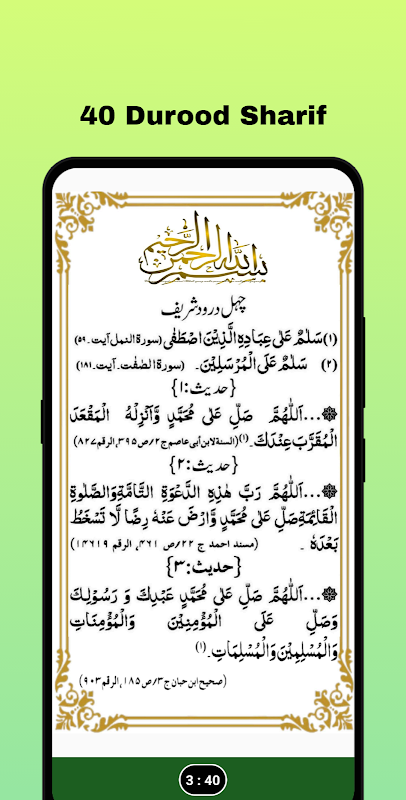 40 Durood Sharif
بسم الله الرحمن الرحيم
چہل درود شریف
(۱) سَلٰمٌ عَلٰی عِبَادِہِ الَّذِیْنَ اصْطَفٰی (سورۃ النمل آیت۔۵۹)
(۲) سَلٰمٌ عَلَی الْمُرْسَلِیْنَ۔ (سورۃ الصّٰفّٰت۔آیت۔۱۸۱)
{حدیث:۱}
۞...اَللّٰھُمَّ صَلِّ عَلٰی مُحَمَّدٍ وَّاَنْزِلْہُ الْمَقْعَدَ
الْمُقَرَّبَ عِنْدَكَ۔(۱)(السنۃ لابن أبی عاصم ج۲/ص۳۹۵،الرقم۸۲۷)
{حدیث:۲}
۞...اَللّٰھُمَّ رَبَّ ھٰذِہِ الدَّعْوَۃِ التَّامَّۃِ وَالصَّلٰوۃِ
الْقَائِمَۃِ صَلِّ عَلٰی مُحَمَّدٍ وَّارْضَ عَنْہُ رِضًا لَّا تَسْخَطُ
بَعْدَہٗ ۔ (مسند احمد ج ۲۲/ص ۴۶۱، الرقم ۱۴۶۱۹)
{حدیث:۳}
۞...اَللّٰھُمَّ صَلِّ عَلٰی مُحَمَّدٍ عَبْدِكَ وَ رَسُوْلِكَ
وَصَلِّ عَلَی الْمُؤْمِنِیْنَ وَالْمُؤْمِنَاتِ
وَالْمُسْلِمِیْنَ وَالْمُسْلِمَاتِ۔(۱)
(صحیح ابن حبان ج۳/ص۱۸۵،الرقم۹۰۳)
3 : 40